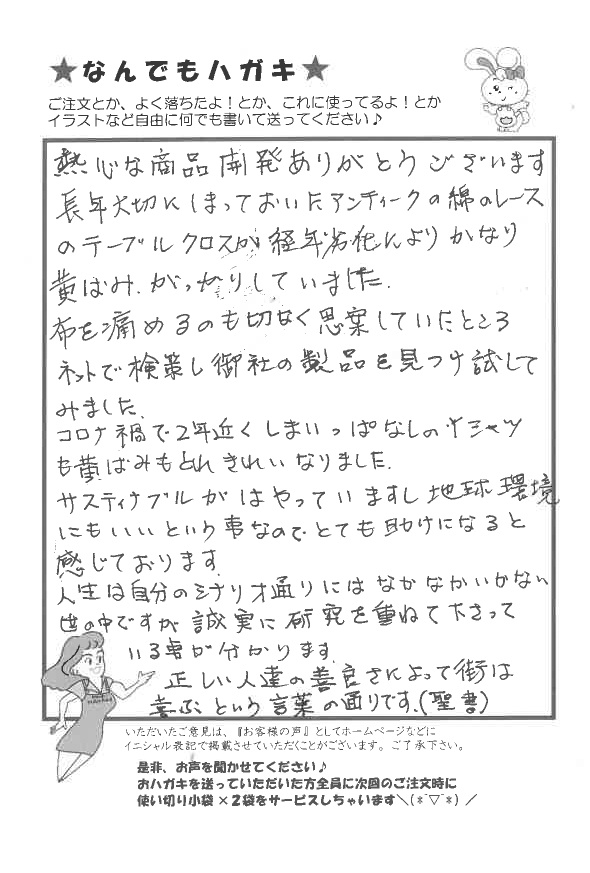 ★なんでもハガキ★
ご注文とか、よく落ちたよ！とか、これに使ってるよ！とか
イラストなど自由に何でも書いて送ってください♪
熱心な商品開発ありがとうございます
長年大切にしまっておいたアンティークの綿のレース
のテーブルクロスが経年劣化によりかなり
黄ばみ、がっかりしていました。
布を痛めるのも切なく思案していたところ
ネットで検策し御社の製品を見つけ試して
みました。
コロナ禍で2年近くしまいっぱなしのYシャツ
も黄ばみもとれきれいなりました。
サスティナブルがはやっていますし地球環境
にもいいという事なのでとても助けになると
感じております。
人生は自分のシナリオ通りにはなかなかいかない
世の中ですが誠実に研究を重ねて下さって
いる事が分かります。
正しい人達の善良さによって街は
喜ぶという言葉の通りです。(聖書)
いただいたご意見は、『お客様の声』としてホームページなどに
イニシャル表記で掲載させていただくことがございます。ご了承下さい。
是非、お声を聞かせてください♪
おハガキを送っていただいた方全員に次回のご注文時に
使い切り小袋×2袋をサービスしちゃいます＼(*￣▽￣*)／